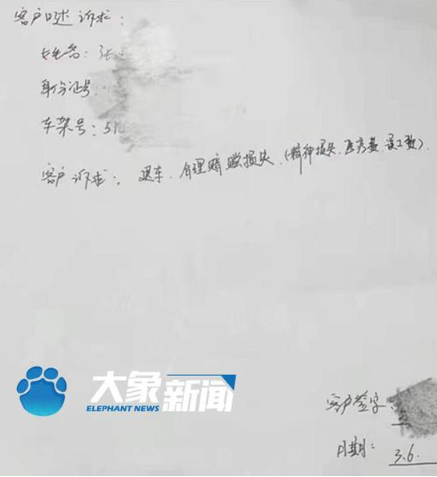 客户口述诉求:
姓名:张
身份证号:
车架号:
客户诉求:退车、合理赔偿损失(精神损失、医疗费、误工费).
大象新闻
ELEPHANT NEWS
客户签字:
日期: 3.6.